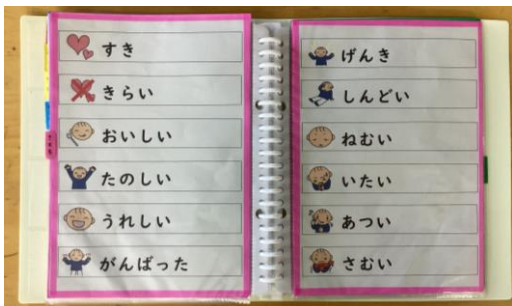 すき
きらい
おいしい
たのしい
うれしい
がんばった
げんき
しんどい
ねむい
いたい
あつい
さむい